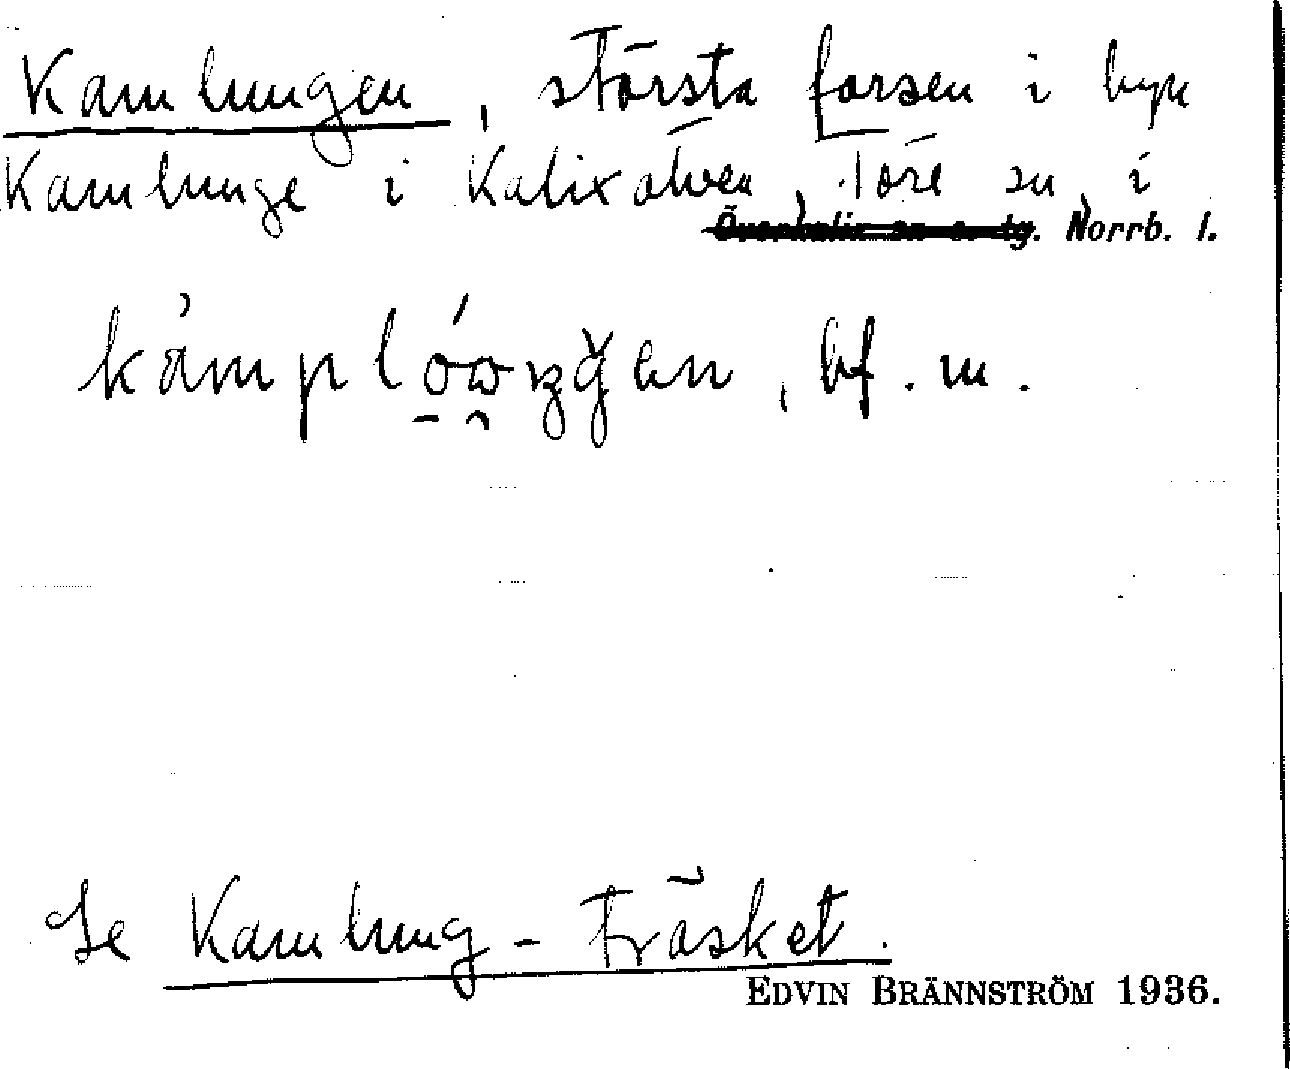 Kamlungen, största forsen i byn
Kamlunge i Kalixälven, Töre sn, i
Överkalix sn o. tg. Norrb. l.
bf. m.
Se Kamlung-träsket.
EDVIN BRÄNNSTRÖM 1936.